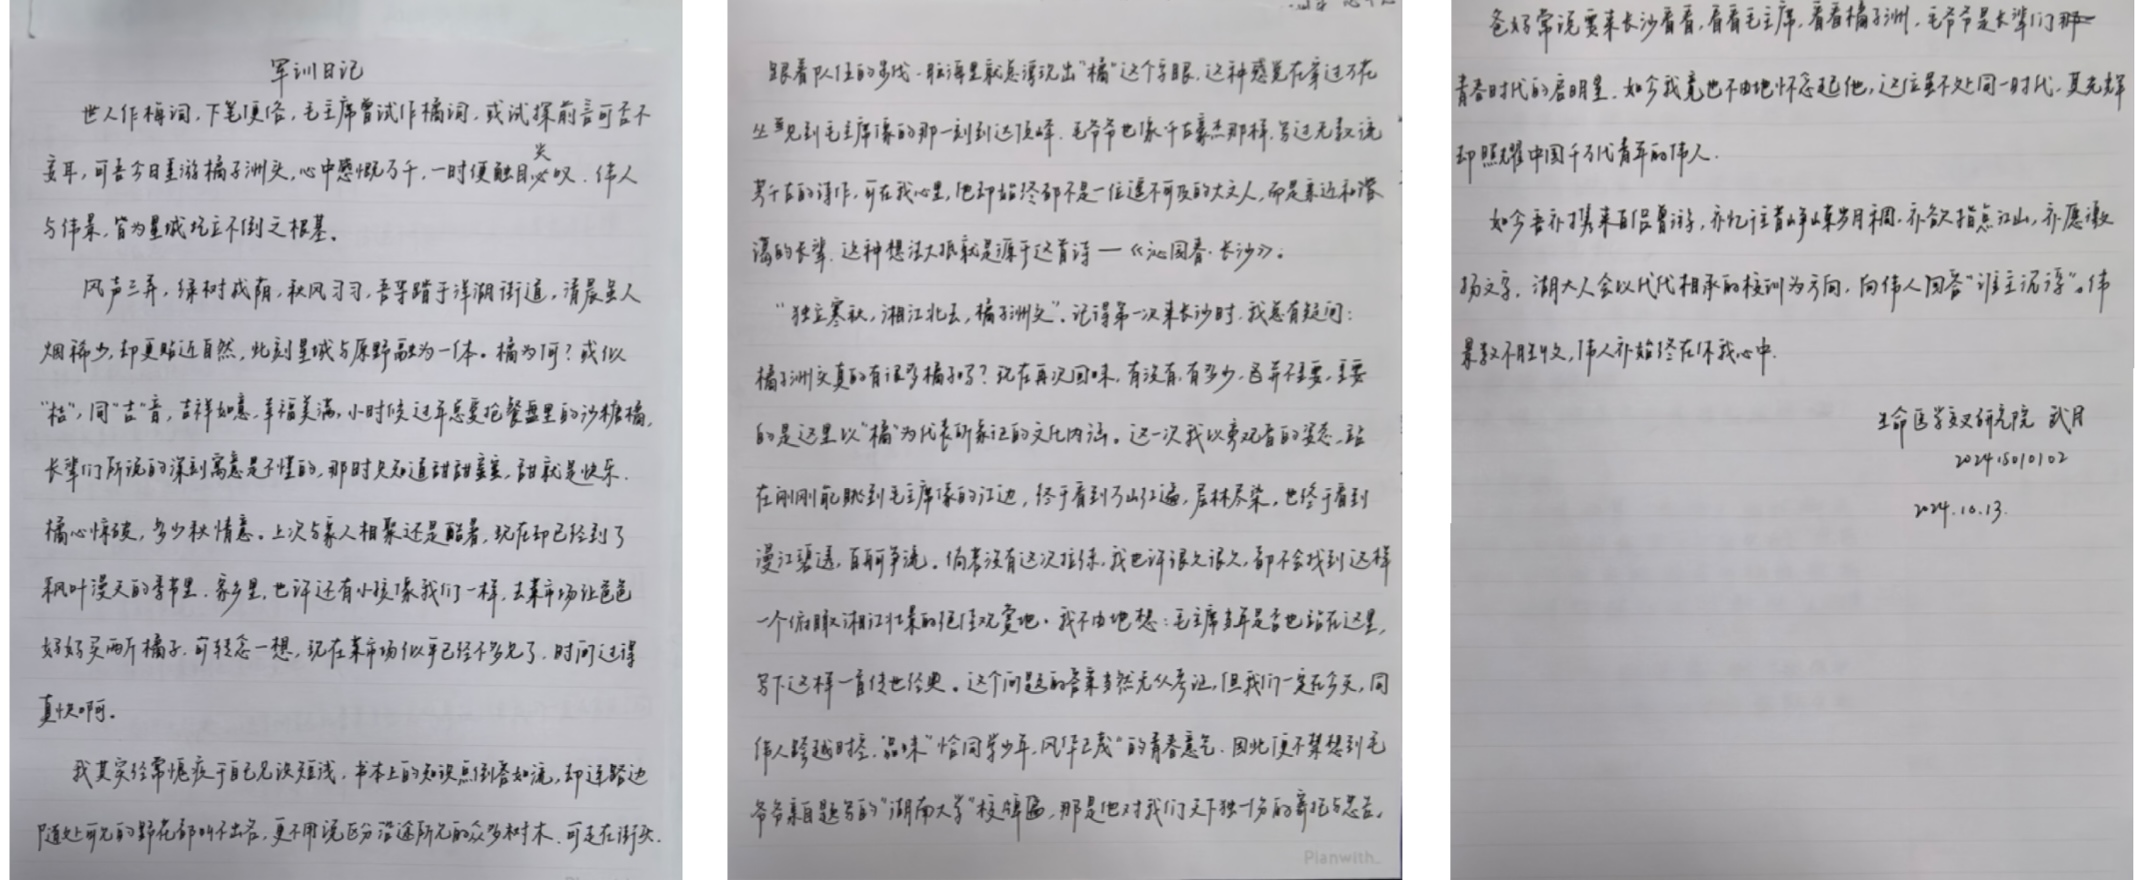 军训日记
世人作梅词，下笔便俗，毛主席曾试作橘词，或试探前言可否不
妄耳，可吾今日重游橘子洲头，心中感慨万千，一时便触目兴叹。伟人
与伟景，皆为星城屹立不倒之根基。
风声三弄，绿树成荫，秋风习习，吾等踏于洋湖街道，清晨虽人
烟稀少，却更贴近自然，此刻星城与原野融为一体。橘为何？或似
“桔”，同“吉”音，吉祥如意，幸福美满，小时候过年总要抢餐盘里的沙糖橘，
长辈们所说的深刻寓意是不懂的，那时只知道甜甜蜜蜜，甜就是快乐.
橘心惊破，多少秋情意。上次与家人相聚还是酷暑，现在却已经到了
枫叶漫天的季节里.家乡里，也许还有小孩像我们一样，去菜市场让爸爸
妈妈买两斤橘子.可转念一想，现在菜市场似乎已经不多见了.时间过得
真快啊。
我其实经常愧疚于自己见识短浅，书本上的知识点倒背如流，却连路边
随处可见的野花都叫不出名，更不用说区分沿途所见的众多树木.可走在街头.
跟着队伍的步伐.脑海里就总浮现出“橘”这个字眼.这种感觉在穿过万在
丛见到毛主席像的那一刻到达顶峰.毛爷爷也像千古豪杰那样.写过无数流
芳千古的诗作，可在我心里，他却始终都不是一位遥不可及的大文人，而是亲近和蔼
的长辈.这种想法大抵就是源于这首诗—《沁园春·长沙》。
“独立寒秋，湘江北去，橘子洲头”.记得第一次来长沙时，我总有疑问：
橘子洲头真的有很多橘子吗？现在再次回味，有没有，有多少，已并不重要，重要
的是这里以“橘”为代表所象征的文化内涵。这一次我以旁观者的姿态，站
在刚刚能眺到毛主席像的江边，终于看到万山红遍，层林尽染，也终于看到
漫江碧透，百舸争流。倘若没有这次拉练，我也许很久很久，都不会找到这样
一个俯瞰湘江壮景的绝佳观赏地。我不由地想：毛主席当年是否也站在这里，
写下这样一首传世经典。这个问题的答案当然无从考证，但我们一定在今天，同
伟人跨越时空，品味“恰同学少年，风华正茂”的青春意气.因此便不禁想到毛
爷爷亲自题写的“湖南大学”校牌匾，那是他对我们天下独一份的寄托与思念.
爸妈常说要来长沙看看，看看毛主席，看看橘子洲，毛爷爷是长辈们那
青春时代的启明星.如今我竟也不由地怀念起他，这位虽不处同一时代，其光辉
却照耀中国千万代青年的伟人.
如今吾亦携来百侣曾游，亦忆往昔峥嵘岁月稠.亦欲指点江山，亦愿激
扬文字.湖大人会以代代相承的校训为方向，向伟人回答“谁主沉浮”。伟
景数不胜收，伟人亦始终在你我心中.
生命医学交叉研究院 武月
2024.10.13.
Planwith_